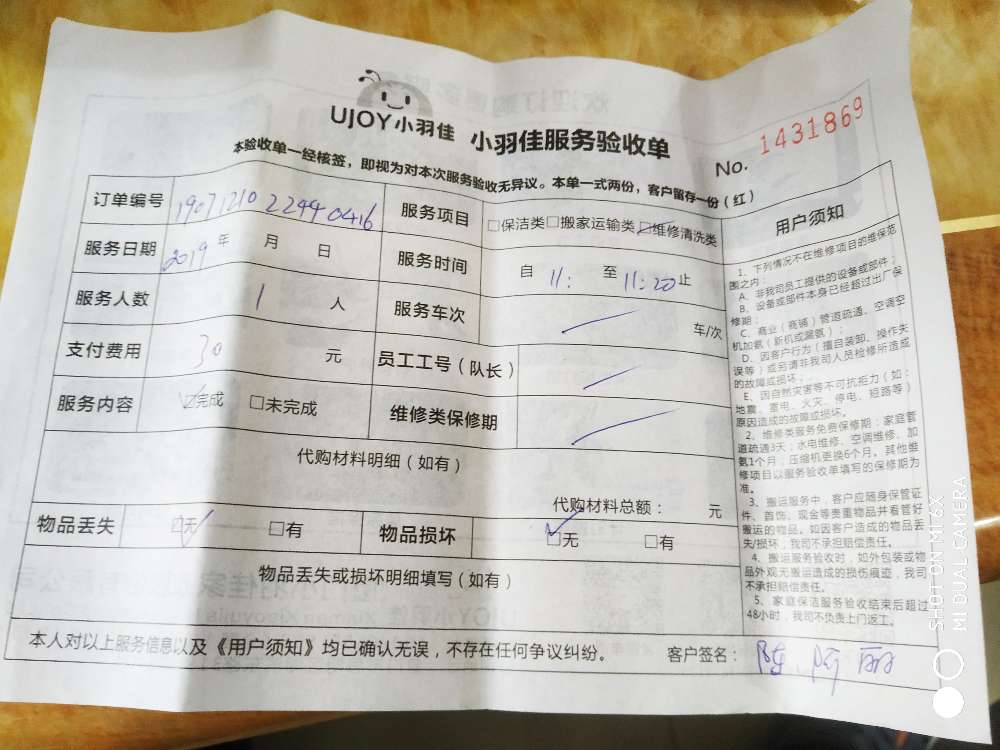 UJOY小羽佳 小羽佳服务验收单
No. 1431869
本验收单一经核签，即视为对本次服务验收无异议。本单一式两份，客户留存一份（红）
订单编号 190712102 服务项目 □保洁类□搬家运输类☑维修清洗类
服务日期 2019年 月 日 服务时间 自 11: 至 11:20 止
服务人数 1 人 服务车次 车/次
支付费用 30 元 员工工号（队长）
服务内容 ☑完成 □未完成 维修类保修期
代购材料明细（如有）
代购材料总额： 元
物品丢失 ☑无 □有 物品损坏 ☑无 □有
物品丢失或损坏明细填写（如有）
本人对以上服务信息以及《用户须知》均已确认无误，不存在任何争议纠纷。 客户签名：
用户须知
1、下列情况不在维修项目的维保范
围之内：
A、非我司员工提供的设备或部件；
B、设备或部件本身已经超过出厂保
修期；
C、商业（商铺）管道疏通、空调空
机加氨（新机或漏氨）；
D、因客户行为（擅自装卸、操作失
误等）或另请非我司人员检修所造成
的故障或损坏；
E、因自然灾害等不可抗拒力（如：
地震、雷电、火灾、停电、短路等）
原因造成的故障或损坏。
2、维修类服务免费保修期：家庭管
道疏通3天；水电维修、空调维修、加
氨1个月；压缩机更换6个月。其他维
修项目以服务验收单填写的保修期为
准。
3、搬运服务中，客户应随身保管证
件、首饰、现金等贵重物品并看管好
搬运的物品。如因客户造成的物品丢
失/损坏，我司不承担赔偿责任。
4、搬运服务验收时，如外包装或物
品外观无搬运造成的损伤痕迹，我司
不承担赔偿责任。
5、家庭保洁服务验收结束后超过
48小时，我司不负责上门返工。
SHOT ON MI 6X
MI DUAL CAMERA